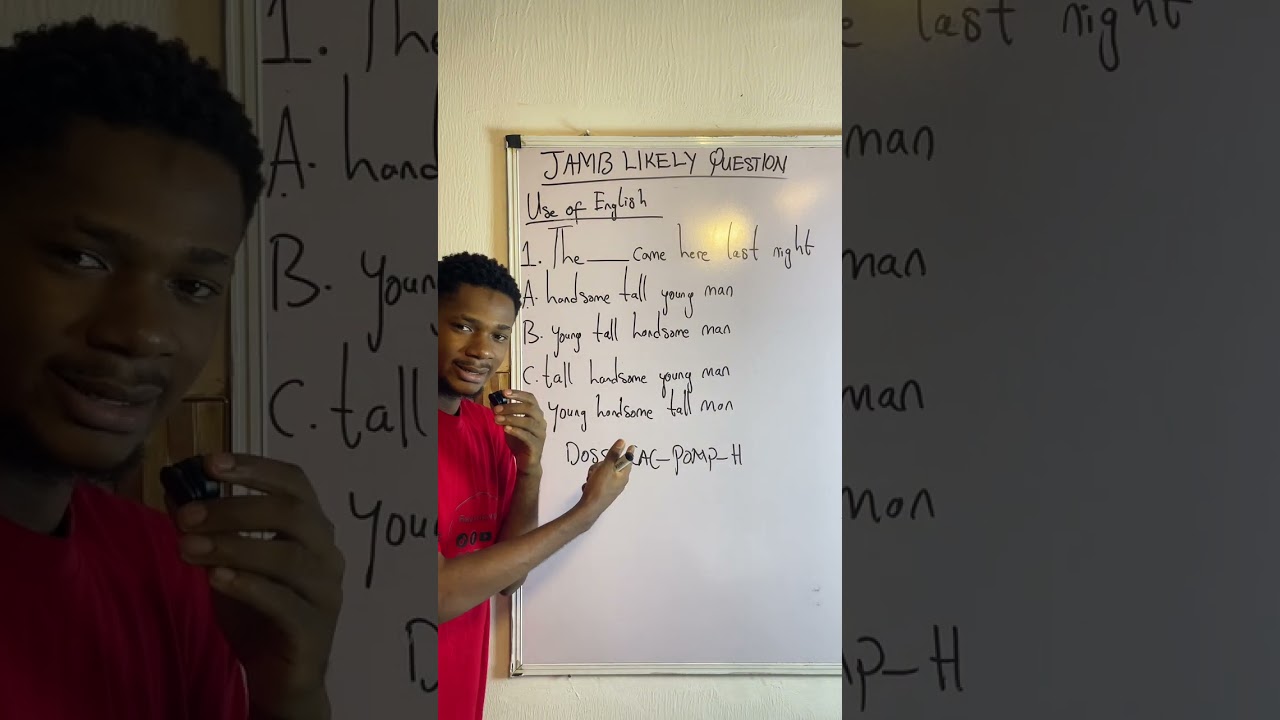 JAMB LIKELY QUESTION
Use of English
1. The ____ came here last night
A. handsome tall young man
B. young tall handsome man
C. tall handsome young man
young handsome tall man
POMP-H